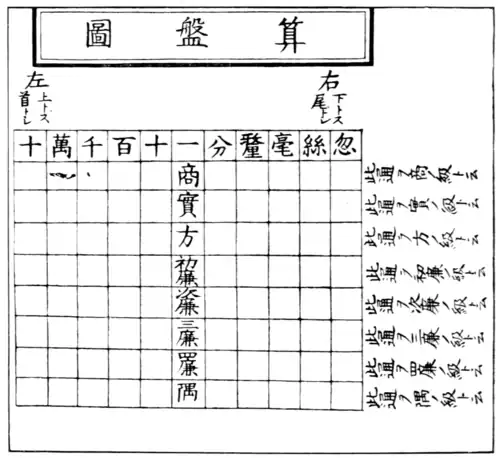 算盤圖
右
下トス
尾トシ
左
上トス
首トシ
十 萬 千 百 十 一 分 釐 毫 絲 忽
商
實
方
初廉
次廉
三廉
四廉
隅
此通ヲ商ノ級ト云
此通ヲ實ノ級ト云
此通ヲ方ノ級ト云
此通ヲ初廉ノ級ト云
此通ヲ次廉ノ級ト云
此通ヲ三廉ノ級ト云
此通ヲ四廉ノ級ト云
此通ヲ隅ノ級ト云